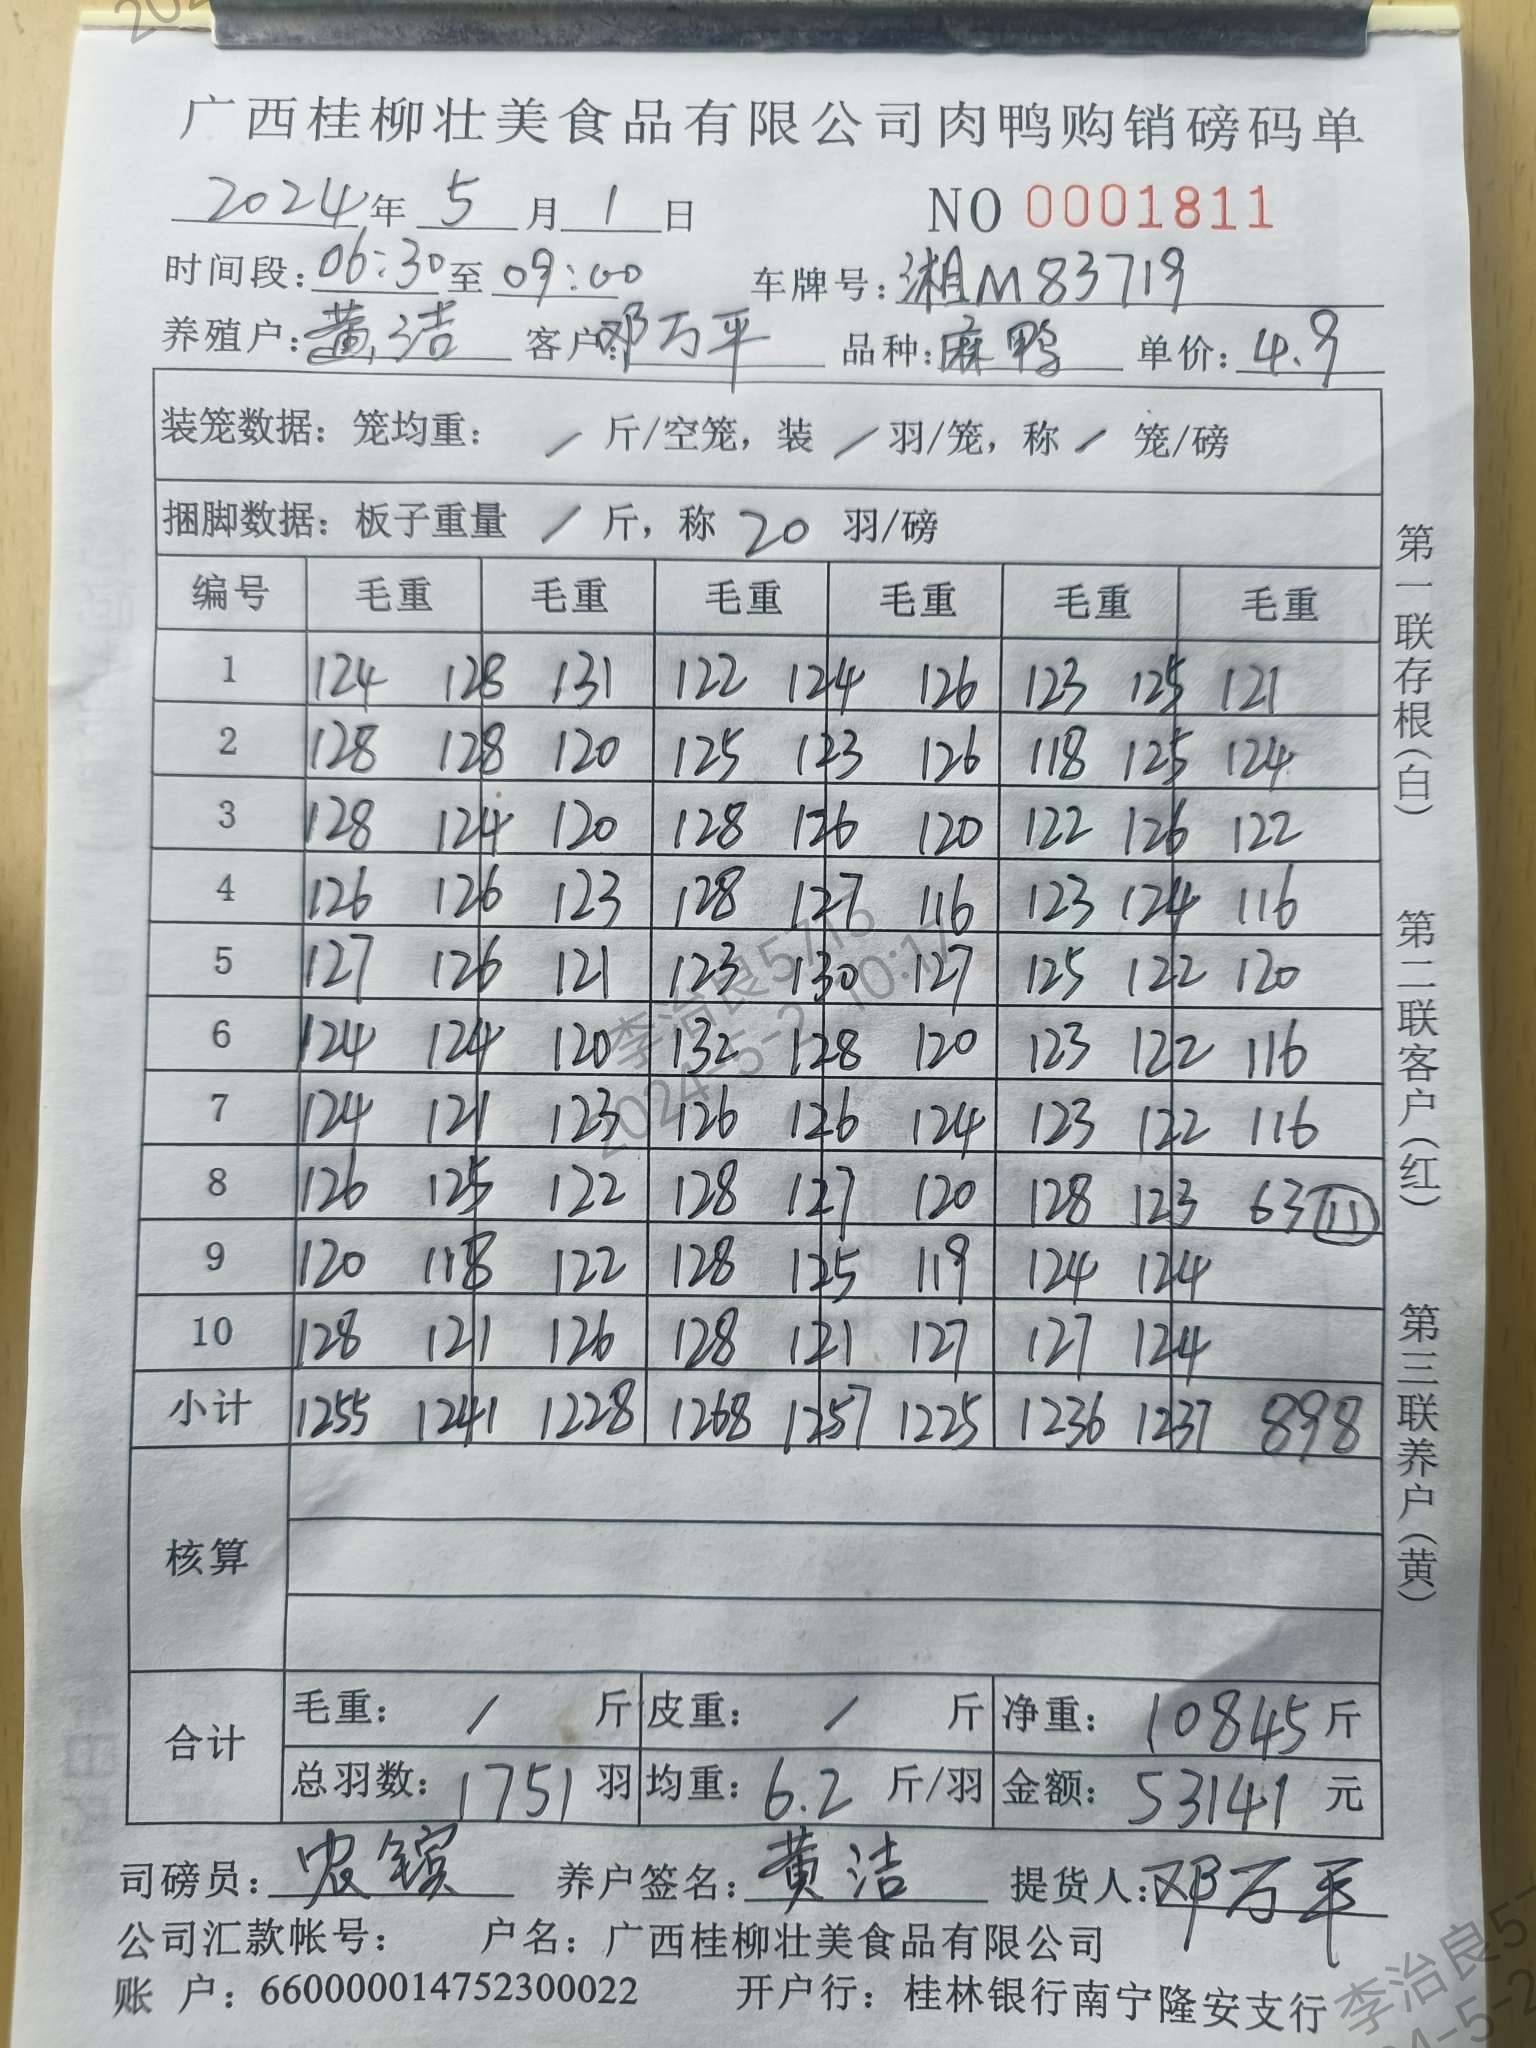 广西桂柳壮美食品有限公司肉鸭购销磅码单
2024年 5月 1日 NO 0001811
时间段:06:30至09:00 车牌号:湘M83719
养殖户:黄洁 客户:邓万平 品种:麻鸭 单价:4.9
装笼数据:笼均重: / 斤/空笼,装 / 羽/笼,称 / 笼/磅
捆脚数据:板子重量 / 斤,称 20 羽/磅
编号 毛重 毛重 毛重 毛重 毛重 毛重
1 124 128 131 122 124 126 123 125 121
2 128 128 120 125 123 126 118 125 124
3 128 124 120 128 126 120 122 126 122
4 126 126 123 128 127 116 123 124 116
5 127 126 121 123 130 127 125 122 120
6 124 124 120 132 128 120 123 122 116
7 124 121 123 126 126 124 123 122 116
8 126 125 122 128 127 120 128 123 63 11
9 120 118 122 128 125 119 124 124
10 128 121 126 128 121 127 127 124
小计 1255 1241 1228 1268 1257 1225 1236 1237 898
核算
合计 毛重: / 斤 皮重: / 斤 净重: 10845 斤
总羽数: 1751 羽 均重: 6.2 斤/羽 金额: 53141 元
司磅员:农镔 养户签名:黄洁 提货人:邓万平
公司汇款帐号: 户名:广西桂柳壮美食品有限公司
账 户:660000014752300022 开户行:桂林银行南宁隆安支行
第一联存根(白) 第二联客户(红) 第三联养户(黄)
李治良5715
2024-5-2 10:17
李治良5